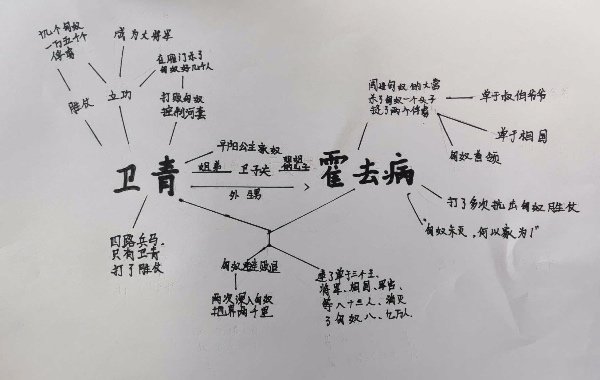 抓个匈奴
一万五千个
俘虏
成为大将军
在雁门杀了
匈奴好几千人
胜仗
立功
打败匈奴
控制河套
闯进匈奴的大营
杀了匈奴一个
捉了两个俘虏
单于叔伯爷爷
单于相国
匈奴首领
平阳公主家奴
姐弟
卫子夫
卫青
霍去病
外甥
打了多次抗击匈奴胜仗
"匈奴未灭,何以家为!"
四路兵马,
只有卫青
打了胜仗
匈奴
两次深入匈奴
境两千里
逮了单于三个王、
将军、相国、
等八十三人、消灭
了匈奴八、九万人